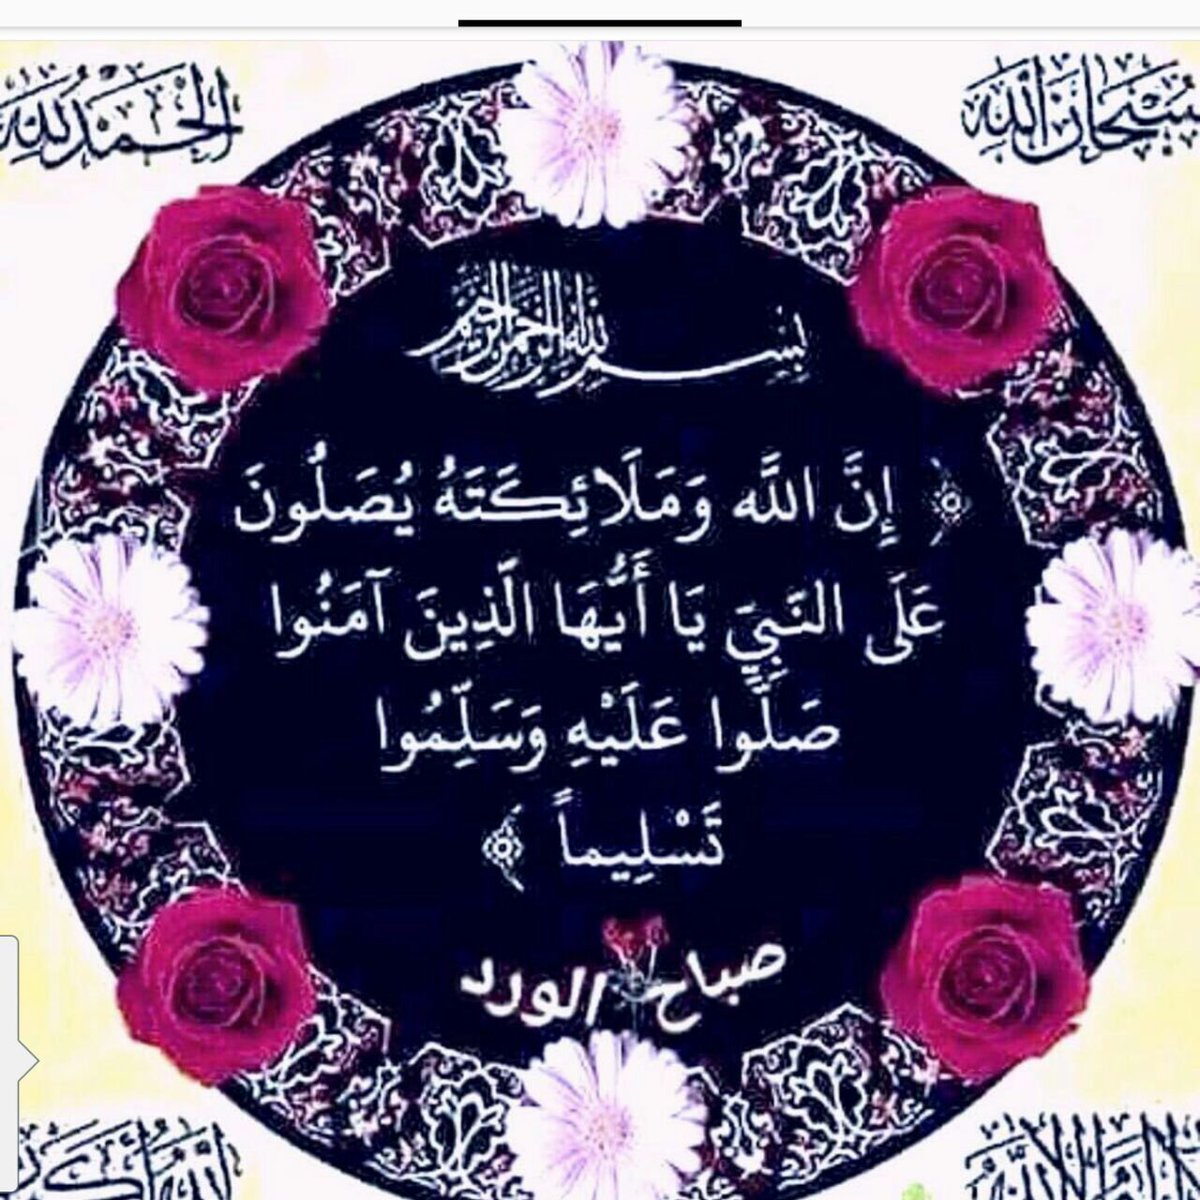 سُبْحَانَ اللَّه
الْحَمْدُ لِلَّه
بِسْمِ اللهِ الرَّحْمَنِ الرَّحِيمِ
﴿ إِنَّ اللَّه وَمَلَائِكَتَهُ يُصَلُونَ
عَلَى النَبِيَ يَا أَيُّهَا الَذِينَ آمَنُوا
صَلُّوا عَلَيْهِ وَسَلِّمُوا
تَسْلِيماً ﴾
صباح الورد
لا إله إلا الله
الله أكبر